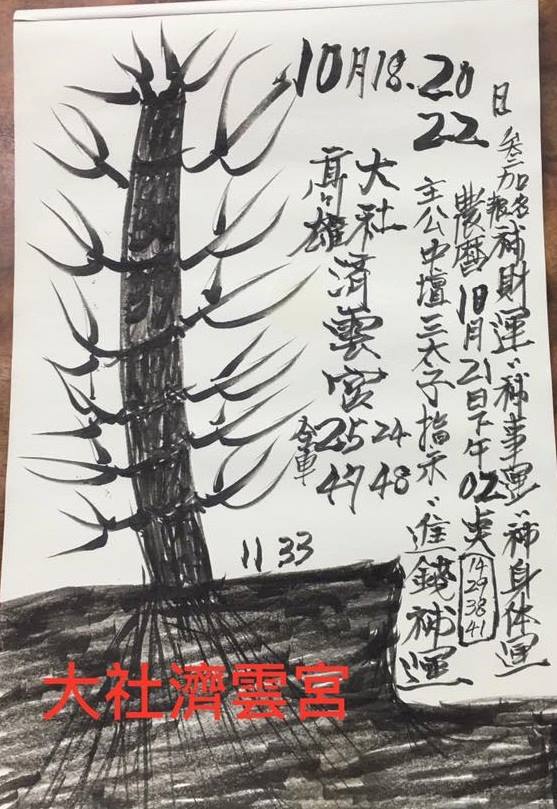 10月18.20
22
日
參加報名補財運、補事運、補身体運
農曆10月21日下午02点
14
29
38
41
主公中壇三太子指示、進錢補運
大社
高雄
濟雲宮
24
48
合車25
47
11 33
大社濟雲宮